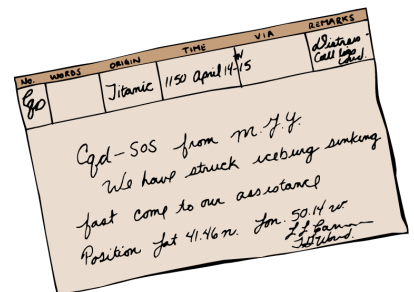 No. WORDS ORIGIN TIME VIA REMARKS
Titanic 1150 April 14-15 Distress -
Call
Cqd - SOS from M.G.Y.
We have struck iceburg sinking
fast come to our assistance
Position Lat 41.46 n. Lon. 50.14 w